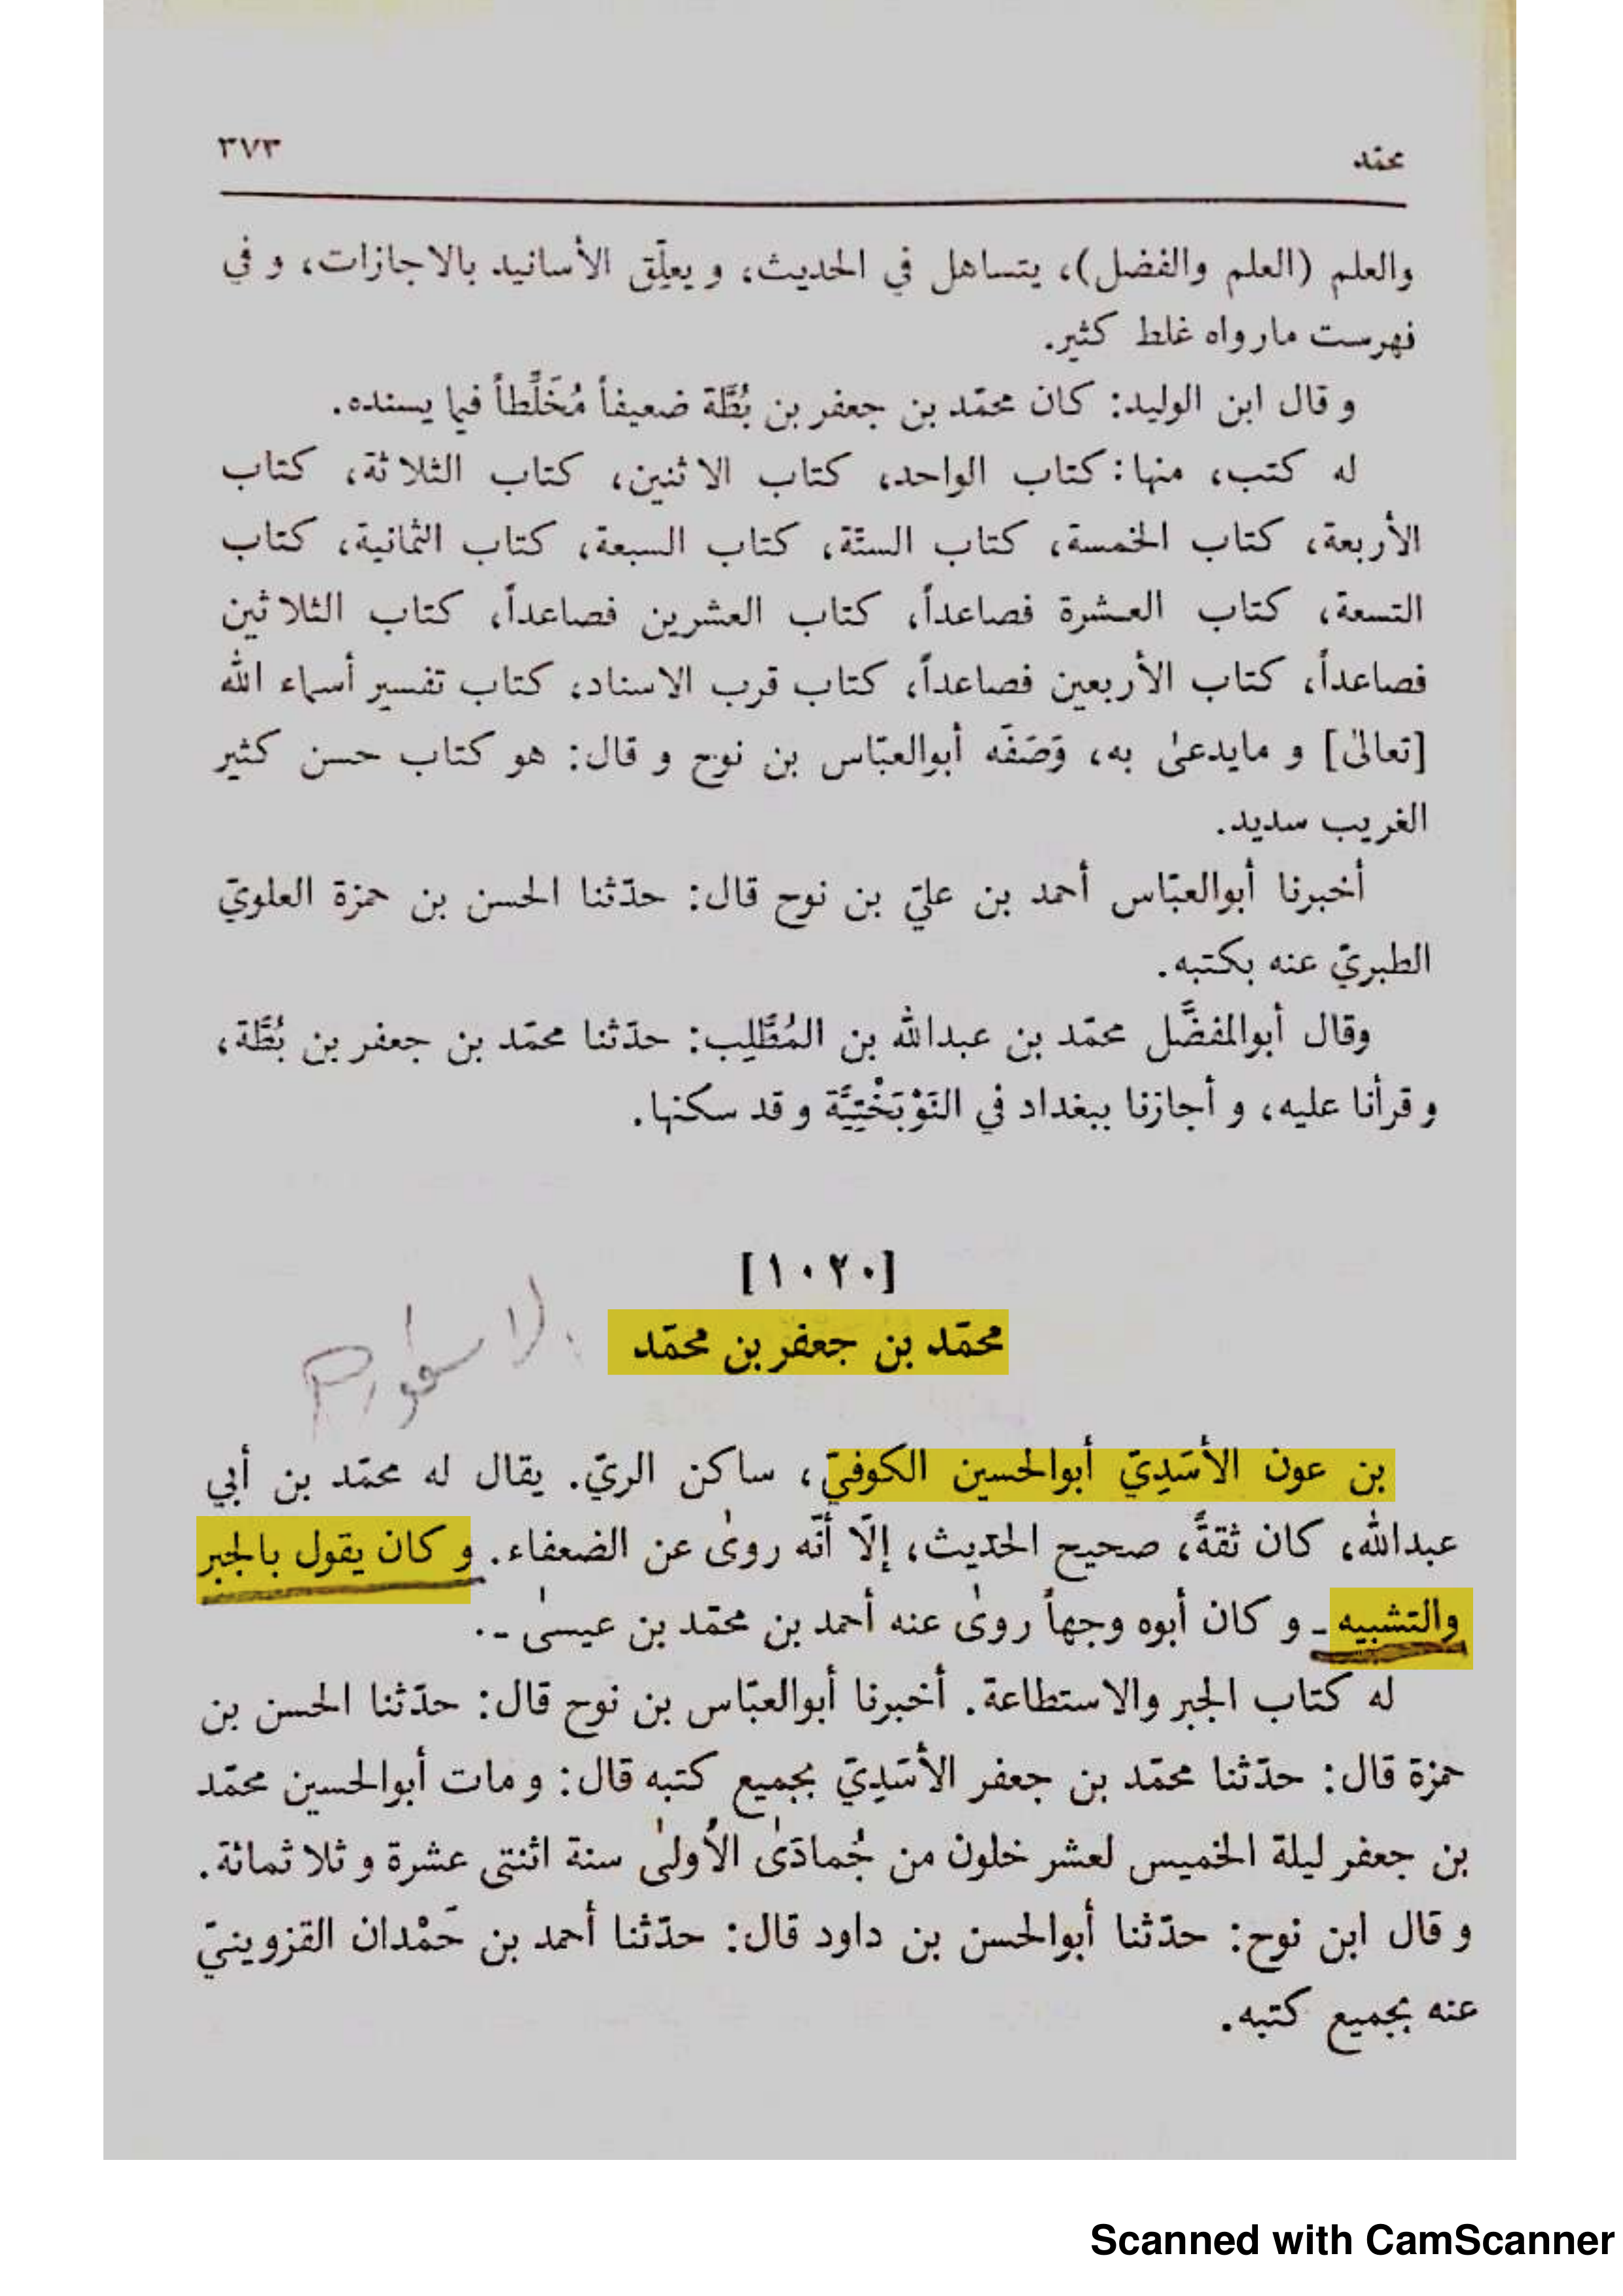 محمّد
٣٧٣
والعلم (العلم والفضل)، يتساهل في الحديث، و يعلِّق الأسانيد بالاجازات، و في
فهرست مارواه غلط كثير.
و قال ابن الوليد: كان محمّد بن جعفر بن بُطَّة ضعيفاً مُخَلِّطاً فيما يسنده.
له كتب، منها: كتاب الواحد، كتاب الاثنين، كتاب الثلاثة، كتاب
الأربعة، كتاب الخمسة، كتاب الستّة، كتاب السبعة، كتاب الثمانية، كتاب
التسعة، كتاب العشرة فصاعداً، كتاب العشرين فصاعداً، كتاب الثلاثين
فصاعداً، كتاب الأربعين فصاعداً، كتاب قرب الاسناد، كتاب تفسير أسماء الله
[تعالىٰ] و مايدعىٰ به، وَصَفَه أبوالعبّاس بن نوح و قال: هو كتاب حسن كثير
الغريب سديد.
أخبرنا أبوالعبّاس أحمد بن عليّ بن نوح قال: حدّثنا الحسن بن حمزة العلويّ
الطبريّ عنه بكتبه.
وقال أبوالمفضَّل محمّد بن عبدالله بن المُطَّلِب: حدّثنا محمّد بن جعفر بن بُطَّة،
و قرأنا عليه، و أجازنا ببغداد في النَوْبَخْتِيَّة و قد سكنها.
[١٠٢٠]
محمّد بن جعفر بن محمّد
بن عون الأسَدِيّ أبوالحسين الكوفيّ، ساكن الريّ. يقال له محمّد بن أبي
عبدالله، كان ثقةً، صحيح الحديث، إلّا أنّه روىٰ عن الضعفاء. و كان يقول بالجبر
والتشبيه ـ و كان أبوه وجهاً روىٰ عنه أحمد بن محمّد بن عيسىٰ ـ.
له كتاب الجبر والاستطاعة. أخبرنا أبوالعبّاس بن نوح قال: حدّثنا الحسن بن
حمزة قال: حدّثنا محمّد بن جعفر الأسَدِيّ بجميع كتبه قال: و مات أبوالحسين محمّد
بن جعفر ليلة الخميس لعشر خلون من جُمادَىٰ الأُولىٰ سنة اثنتى عشرة و ثلاثمائة.
و قال ابن نوح: حدّثنا أبوالحسن بن داود قال: حدّثنا أحمد بن حَمْدان القزوينيّ
عنه بجميع كتبه.
Scanned with CamScanner